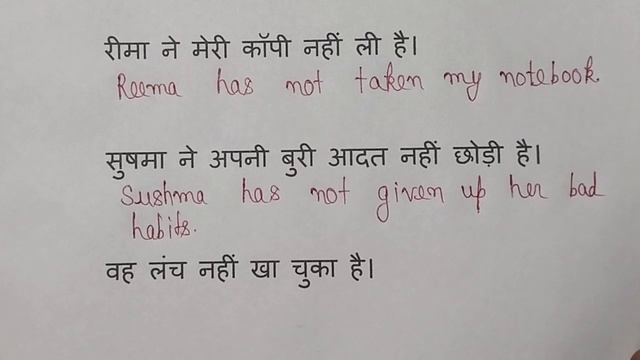 रीमा ने मेरी कॉपी नहीं ली है।
Reema has not taken my notebook.
सुषमा ने अपनी बुरी आदत नहीं छोड़ी है।
Sushma has not given up her bad
habits.
वह लंच नहीं खा चुका है।